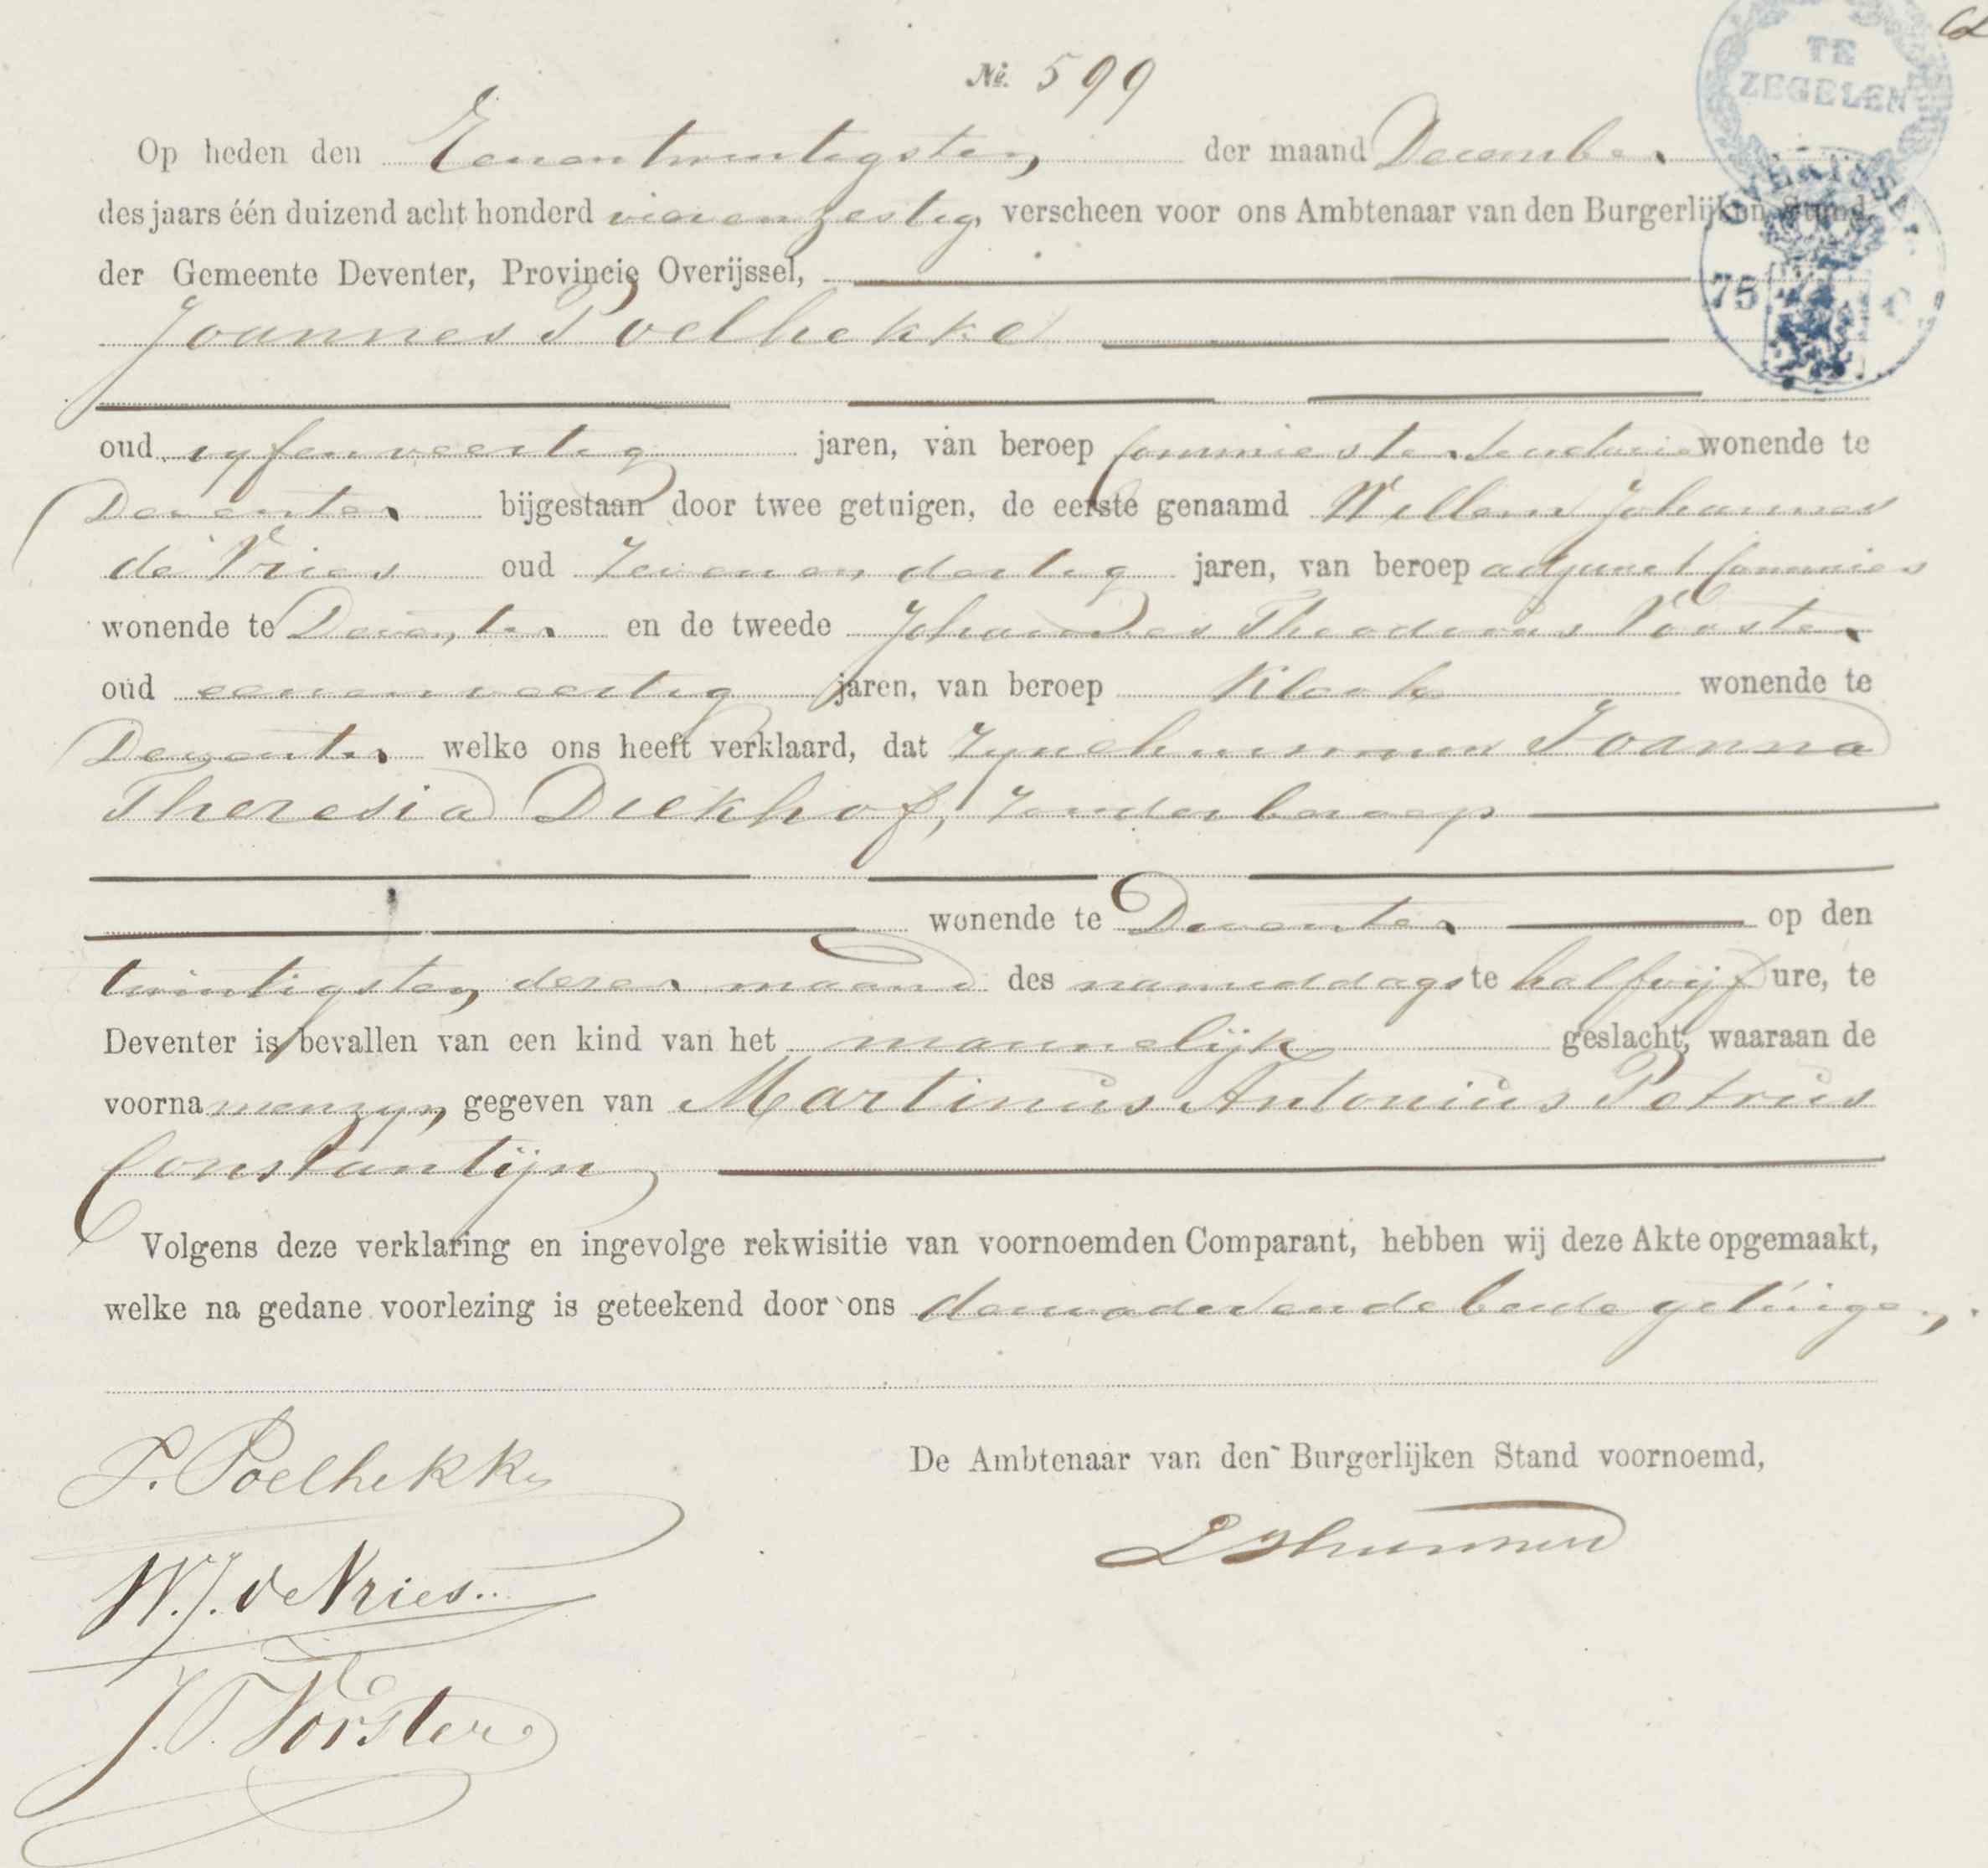 №. 599
TE
ZEGELEN
Op heden den Eenentwintigsten der maand December
des jaars één duizend acht honderd vierenzestig, verscheen voor ons Ambtenaar van den Burgerlijken Stand
der Gemeente Deventer, Provincie Overijssel,
75 C.
Joannes Poelhekke
oud vyfenveertig jaren, van beroep wonende te
Deventer bijgestaan door twee getuigen, de eerste genaamd Willem Johannes
de Vries oud Zevenendertig jaren, van beroep adjunct Commies
wonende te Deventer en de tweede Johannes Theodorus Vorster
oud eenenveertig jaren, van beroep Klerk wonende te
Deventer welke ons heeft verklaard, dat zyne huisvrouw Joanna
Theresia Diekhof, zonder beroep
wonende te Deventer op den
twintigsten dezer maand des namiddags te half vijf ure, te
Deventer is bevallen van een kind van het mannelijk geslacht, waaraan de
voornamen zyn gegeven van Martinus Antonius Petrus
Constantijn
Volgens deze verklaring en ingevolge rekwisitie van voornoemden Comparant, hebben wij deze Akte opgemaakt,
welke na gedane voorlezing is geteekend door ons den vader en de beide getuigen.
J. Poelhekke
De Ambtenaar van den Burgerlijken Stand voornoemd,
W. J. de Vries
J. T. Vorster